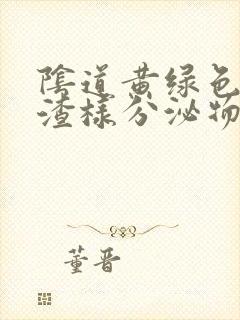 陰道黄绿色
渣樣分泌物
董晋